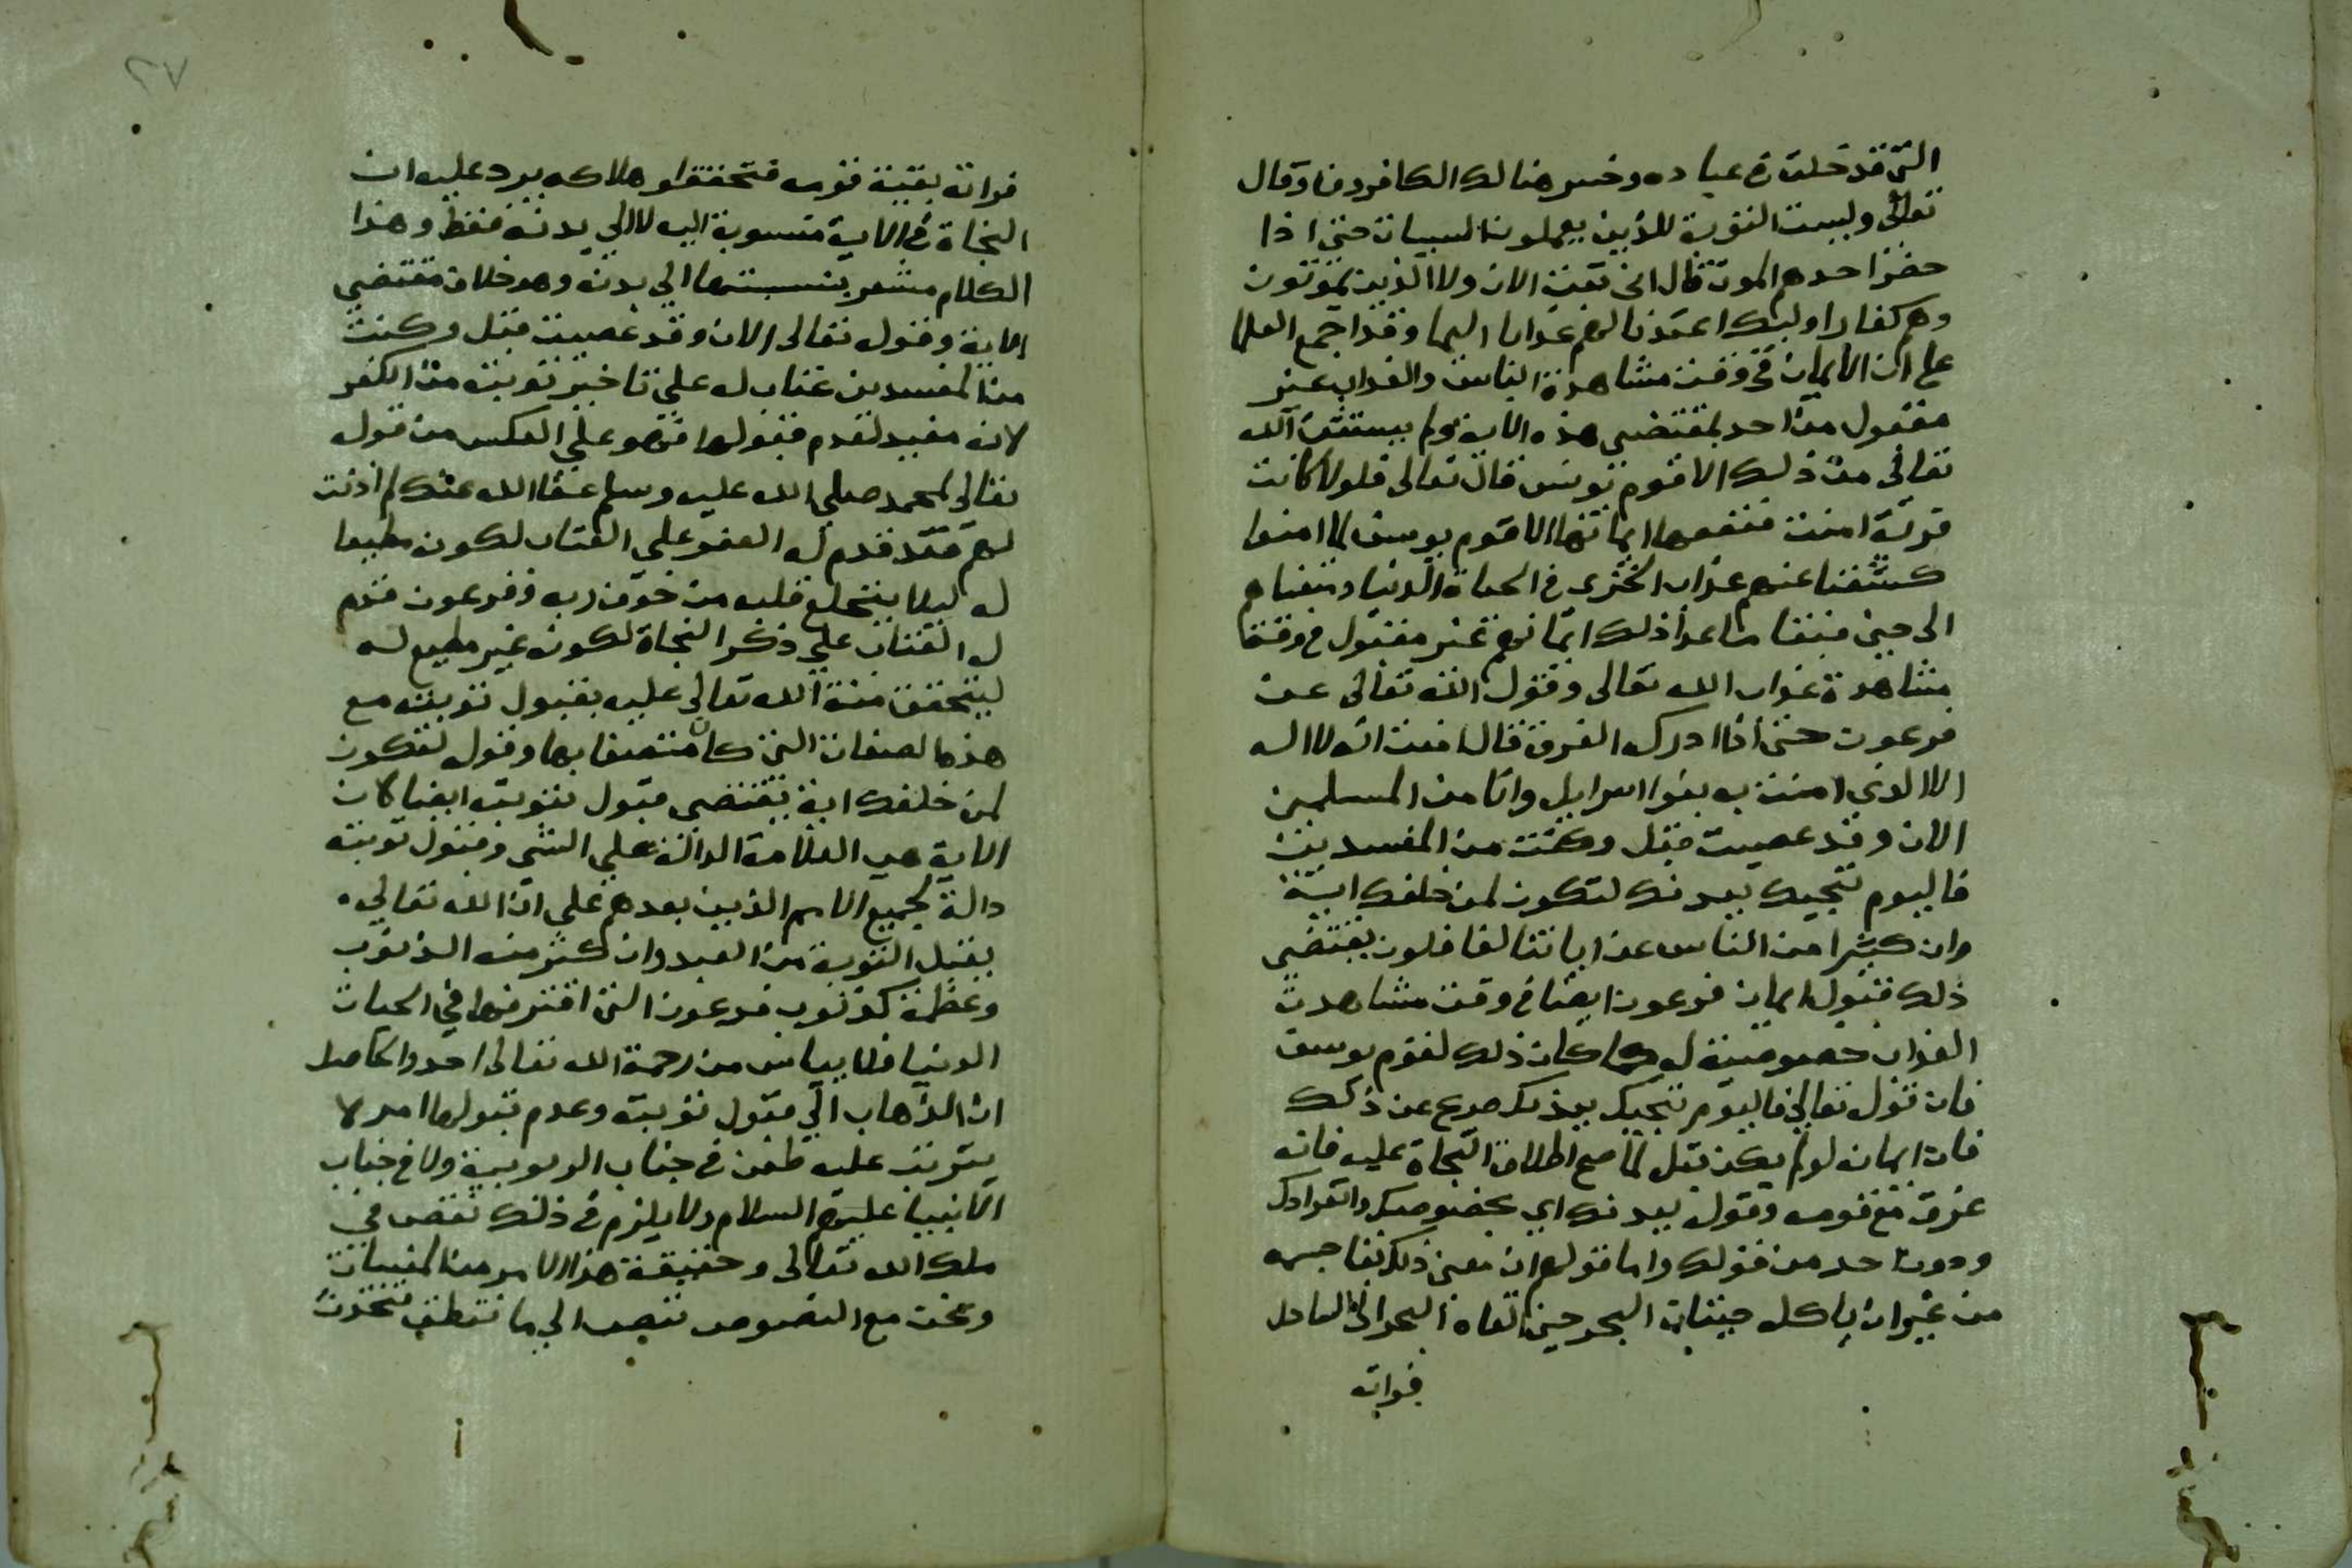 التي قد خلت في عباده وخسر هنالك الكافرون وقال
تعالى وليست التوبة للذين يعملون السيات حتى اذا
حضر احدهم الموت قال اني تبت الان ولا الذين يموتون
وهم كفار اوليك اعتدنا لهم عذابا اليما وقد اجمع العلما
على ان الايمان في وقت مشاهدة الباس والعذاب غير
مقبول من احد بمقتضى هذه الاية ولم يستثن الله
تعالى من ذلك الا قوم يونس قال تعالى فلولا كانت
قرية امنت فنفعها ايمانها الا قوم يونس لما امنوا
كشفنا عنهم عذاب الخزى في الحياة الدنيا ومتعناهم
الى حين فبقا ما عدا ذلك ايمانهم غير مقبول في وقت
مشاهدة عذاب الله تعالى وقول الله تعالى عن
فرعون حتى اذا ادرك الغرق قال امنت انه لا اله
الا الذي امنت به بنوا اسرايل وانا من المسلمين
الان وقد عصيت قبل وكنت من المفسدين
فاليوم ننجيك ببدنك لتكون لمن خلفك اية
وان كثيرا من الناس عن اياتنا لغافلون يقتضى
ذلك قبول ايمان فرعون ايضا في وقت مشاهدت
العذاب خصوصية له كما كان ذلك لقوم يونس
فان قول تعالى فاليوم ننجيك ببدنك صرع عن ذلك
فان ايمانه لو لم يكن قبل لما صح اطلاق النجاة عليه فانه
غرق مع قومه وقوله ببدنك اي بخصوصك وانفرادك
ودون احد من قولك واما قولهم ان معنى ذلك بقا جسمه
من غير ان ياكله حيتان البحر حين القاه البحر الى الساحل
فراته
٢٧
فراته بقية قومه فتحققوا هلاكه يرد عليه ان
النجاة في الاية منسوبة اليه لا الي بدنه فقط وهذا
الكلام مشعر بنسبتها الي بدنه وهو خلاف مقتضي
الاية وقوله تعالى الان وقد عصيت قبل وكنت
من المفسدين عتاب له علي تاخير توبته من الكفر
لانه مفيد لعدم قبولها فهو علي العكس من قوله
تعالى لمحمد صلي الله عليه وسلم عفا الله عنك لم اذنت
لهم فقد قدم له العفو علي العتاب لكونه مطيعا
له ليلا ينخلع قلبه من خوف ربه وفرعون قدم
له العتاب علي ذكر النجاة لكونه غير مطيع له
ليتحقق منة الله تعالي عليه بقبول توبته مع
هذه الصفات التي كان متصفا بها وقوله لتكون
لمن خلفك اية يقتضي قبول توبته ايضا لان
الاية هي العلامة الدالة علي الشي وقبول توبته
دالة لجميع الامم الذين بعدهم علي ان الله تعالي
يقبل التوبة من العبد وان كثر منه الذنوب
وعظمت كذنوب فرعون التي اقترفها في الحيات
الدنيا فلا يياس من رحمة الله تعالى احد والحاصل
ان الذهاب الي قبول توبته وعدم قبولها امر لا
يترتب عليه طعن في جناب الربوبية ولا في جناب
الانبيا عليهم السلام ولا يلزم في ذلك نقص في
ملك الله تعالى وحقيقة هذا الامر من المغيبات
ونحن مع النصوص نتبعها الي ما تنطق فنحن